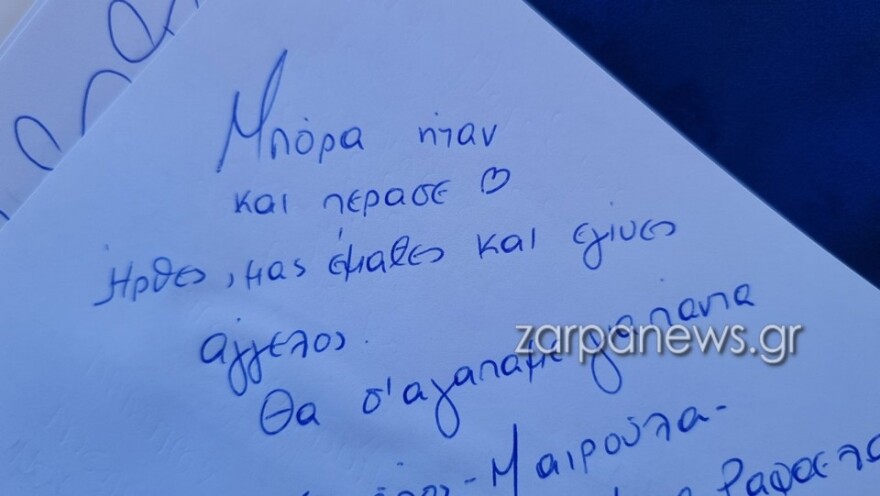 Μπόρα ήταν
και πέρασε ♡
Ήρθες, μας έμαθες και έγινες
άγγελος.
Θα σ'αγαπάμε για πάντα
zarpanews.gr
-Μαιρούλα-